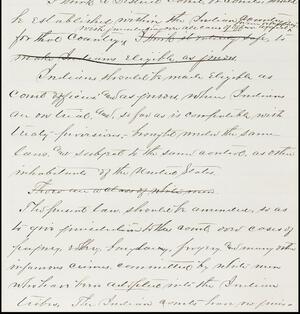 I think a District Court or Courts should
be established within the Indian Country
with jurisdiction
for that Country, I think it entirely safe, to
make Indians eligible as jurors
Indians should be made eligible as
court officers and as jurors when Indians
are on trial. And so far as is compatible with
treaty provisions brought under the same
laws and subject to the same control, as other
inhabitants of the United States.
There are a class of white men
The present law should be amended, so as
to give jurisdiction to this court over cases of
perjury, bribery, burglary, forgery and many other
infamous crimes committed by white men
who have been adopted into the Indian
tribes. The Indian courts have no juris-